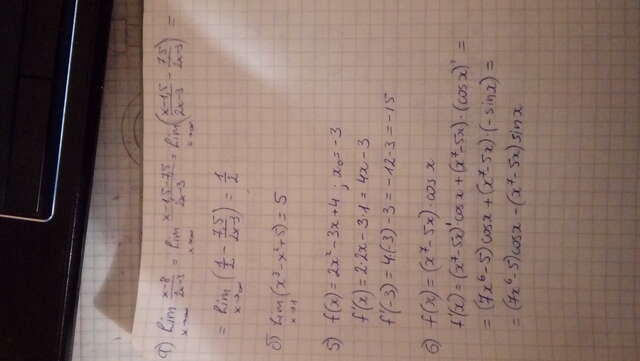 а) lim x→∞ (x-8)/(2x-3) = lim x→∞ (x-1,5-7,5)/(2x-3) = lim x→∞ ((x-1,5)/(2x-3) - 7,5/(2x-3)) =
= lim x→∞ (1/2 - 7,5/(2x-3)) = 1/2
б) lim x→1 (x³-x²+5) = 5
5) f(x) = 2x²-3x+4 ; x₀=-3
f'(x) = 2·2x-3·1 = 4x-3
f'(-3) = 4·(-3)-3 = -12-3 = -15
6) f(x) = (x⁷-5x)·cosx
f'(x) = (x⁷-5x)'·cosx + (x⁷-5x)·(cosx)' =
= (7x⁶-5)cosx + (x⁷-5x)·(-sinx) =
= (7x⁶-5)cosx - (x⁷-5x)sinx